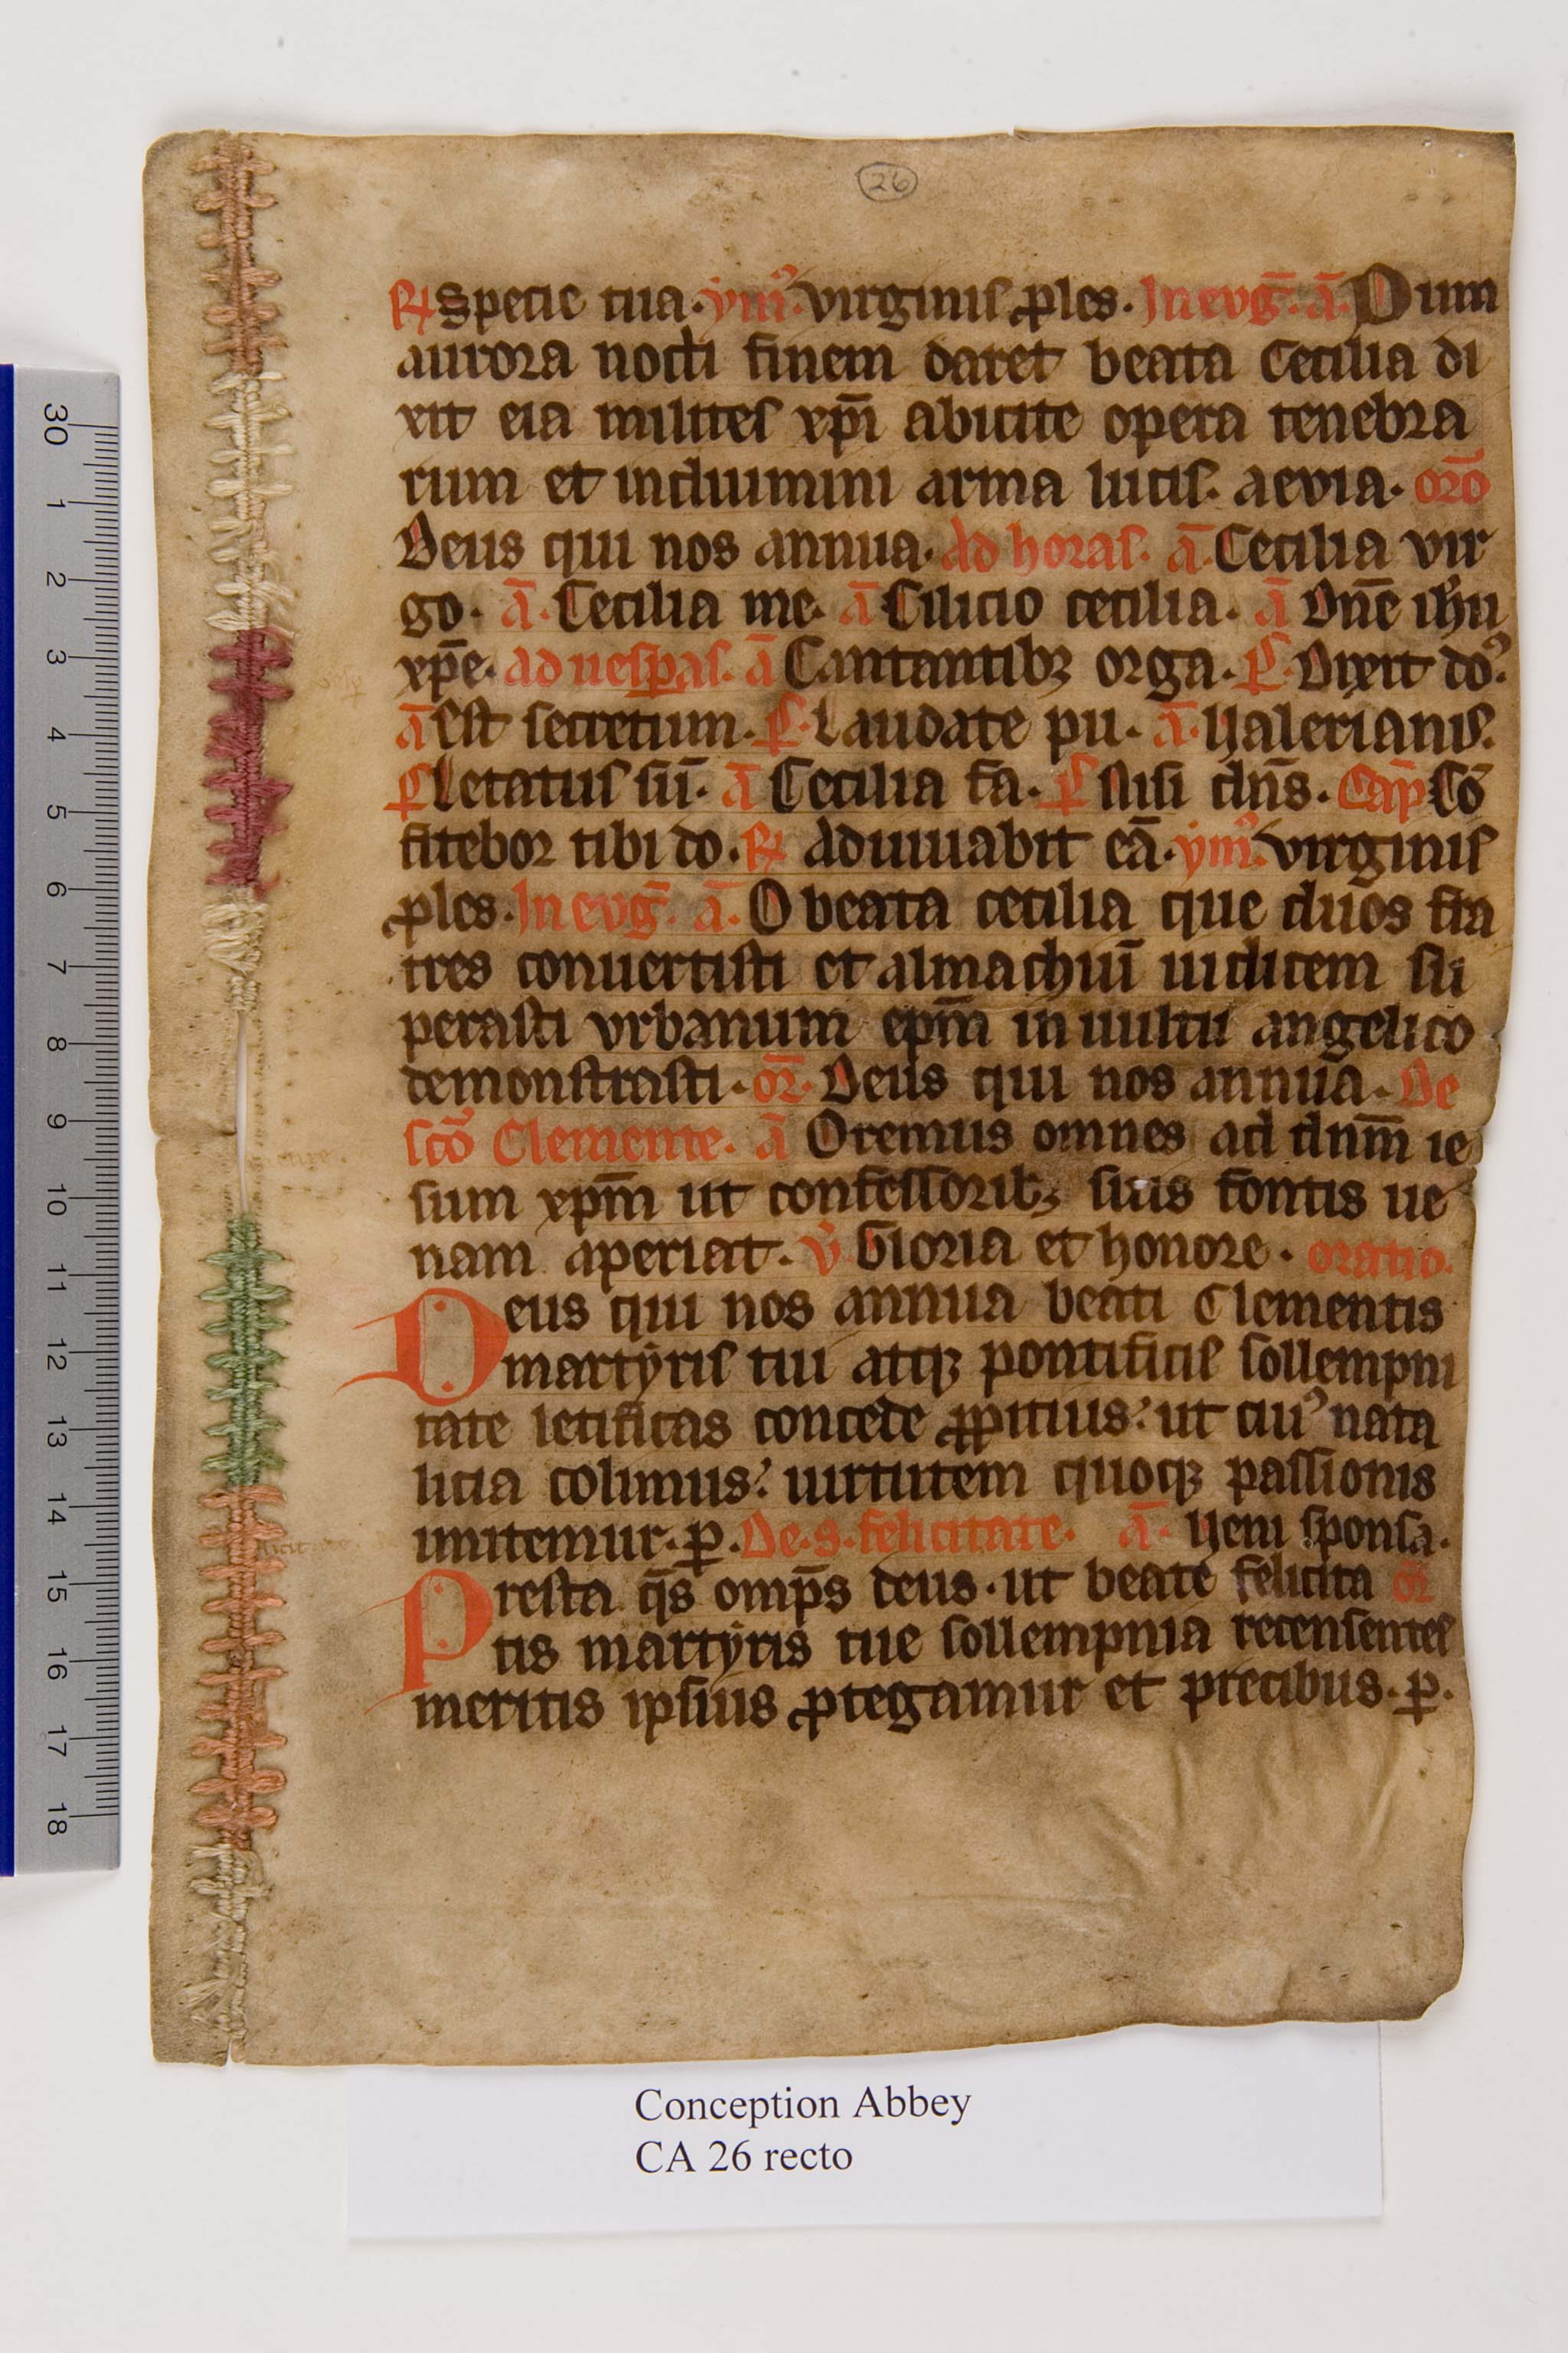 26
R Specie tua. ym̄⁹. virginis ꝓles. In evḡ. ā. Dum
aurora nocti finem daret beata Cecilia di
xit eia milites xp̄i abicite opera tenebra
rum et induimini arma lucis. aevia. oro̅
Deus qui nos annua. Ad horas. ā. Cecilia vir
go. ā. Cecilia me. ā Cilicio cecilia. ā Dn̄e ih̄u
xp̄e. ad uesꝑas. ā Cantantibꝫ orga. p̄s. Dixit do⁹.
ā est secretum. p̄s. Laudate pu. ā. Valerian⁹.
p̄s Letatus sū. ā Cecilia fa. p̄s Nisi dn̄s. Cap̄ Cō
fitebor tibi do. R Adiuuabit eā. ym̄⁹. virginis
ꝓles. In evḡ. ā. O beata cecilia que duos fra
tres conuertisti et almachiū iudicem su
perasti vrbanum ep̄m in uultu angelico
demonstrasti. or̄. Deus qui nos annua. De
sc̄o Clemente. ā Oremus omnes ad dn̄m ie
sum xp̄m ut confessoribꝫ suis fontis ue
nam aperiat. v̄ Gloria et honore. oratio.
Deus qui nos annua beati Clementis
martyris tui atqꝫ pontificis sollempni
tate letificas concede ꝓpitius: ut cui⁹ nata
licia colimus: uirtutem quoqꝫ passionis
imitemur. ꝑ. De. s. felicitate. ā. Veni sponsa.
Presta q̄s omp̄s deus. ut beate felicita or̄
tis martyris tue sollempnia recensentes
meritis ipsius ꝓtegamur et precibus. ꝑ.
30 1 2 3 4 5 6 7 8 9 10 11 12 13 14 15 16 17 18
Conception Abbey
CA 26 recto